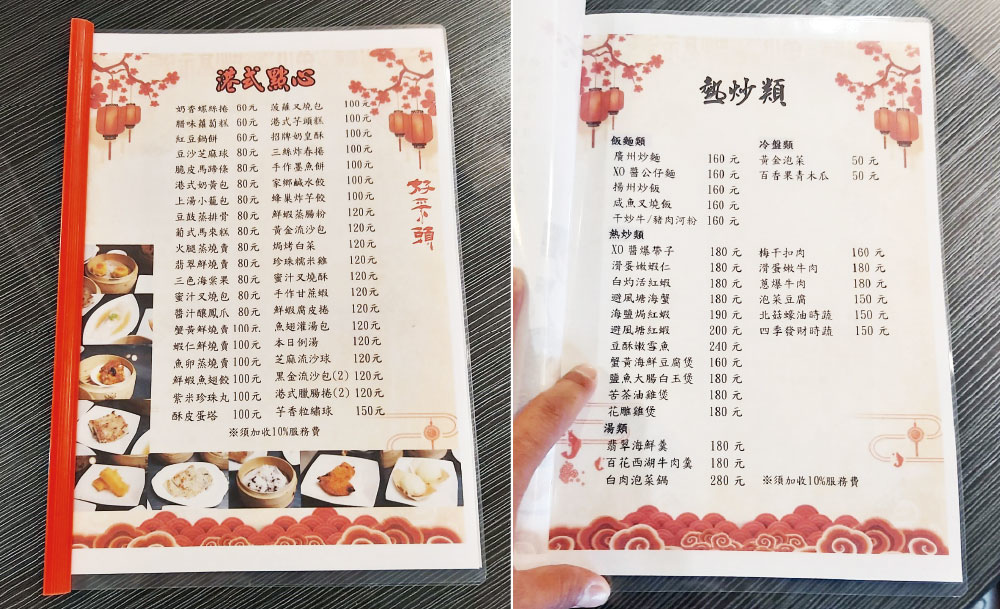 港式點心
奶香螺絲捲 60元 菠蘿叉燒包 100元
腊味蘿蔔糕 60元 港式芋頭糕 100元
紅豆鍋餅 60元 招牌奶皇酥 100元
豆沙芝麻球 80元 三絲炸春捲 100元
脆皮馬蹄條 80元 手作墨魚餅 100元
港式奶黃包 80元 家鄉鹹水餃 100元
上湯小籠包 80元 蜂巢炸芋餃 100元
豆鼓蒸排骨 80元 鮮蝦蒸腸粉 120元
葡式馬來糕 80元 黃金流沙包 120元
火腿蒸燒賣 80元 焗烤白菜 120元
翡翠鮮燒賣 80元 珍珠糯米雞 120元
三色海棠果 80元 蜜汁叉燒酥 120元
蜜汁叉燒包 80元 手作甘蔗蝦 120元
醬汁釀鳳爪 80元 鮮蝦腐皮捲 120元
蟹黃鮮燒賣 100元 魚翅灌湯包 120元
蝦仁鮮燒賣 100元 本日例湯 120元
魚卵蒸燒賣 100元 芝麻流沙球 120元
鮮蝦魚翅餃 100元 黑金流沙包(2) 120元
紫米珍珠丸 100元 港式臘腸捲(2) 120元
酥皮蛋塔 100元 芋香粒繡球 150元
※須加收10%服務費
好彩頭
熱炒類
飯麵類
廣州炒麵 160 元
XO 醬公仔麵 160 元
揚州炒飯 160 元
咸魚叉燒飯 160 元
干炒牛/豬肉河粉 160 元
冷盤類
黃金泡菜 50 元
百香果青木瓜 50 元
熱炒類
XO 醬爆帶子 180 元
滑蛋嫩蝦仁 180 元
白灼活紅蝦 180 元
避風塘海蟹 180 元
海鹽焗紅蝦 190 元
避風塘紅蝦 200 元
豆酥嫩雪魚 240 元
蟹黃海鮮豆腐煲 160 元
鹽魚大腸白玉煲 180 元
苦茶油雞煲 180 元
花雕雞煲 180 元
梅干扣肉 160 元
滑蛋嫩牛肉 180 元
蔥爆牛肉 180 元
泡菜豆腐 150 元
北菇蠔油時蔬 150 元
四季發財時蔬 150 元
湯類
翡翠海鮮羹 180 元
百花西湖牛肉羹 180 元
白肉泡菜鍋 280 元
※須加收10%服務費